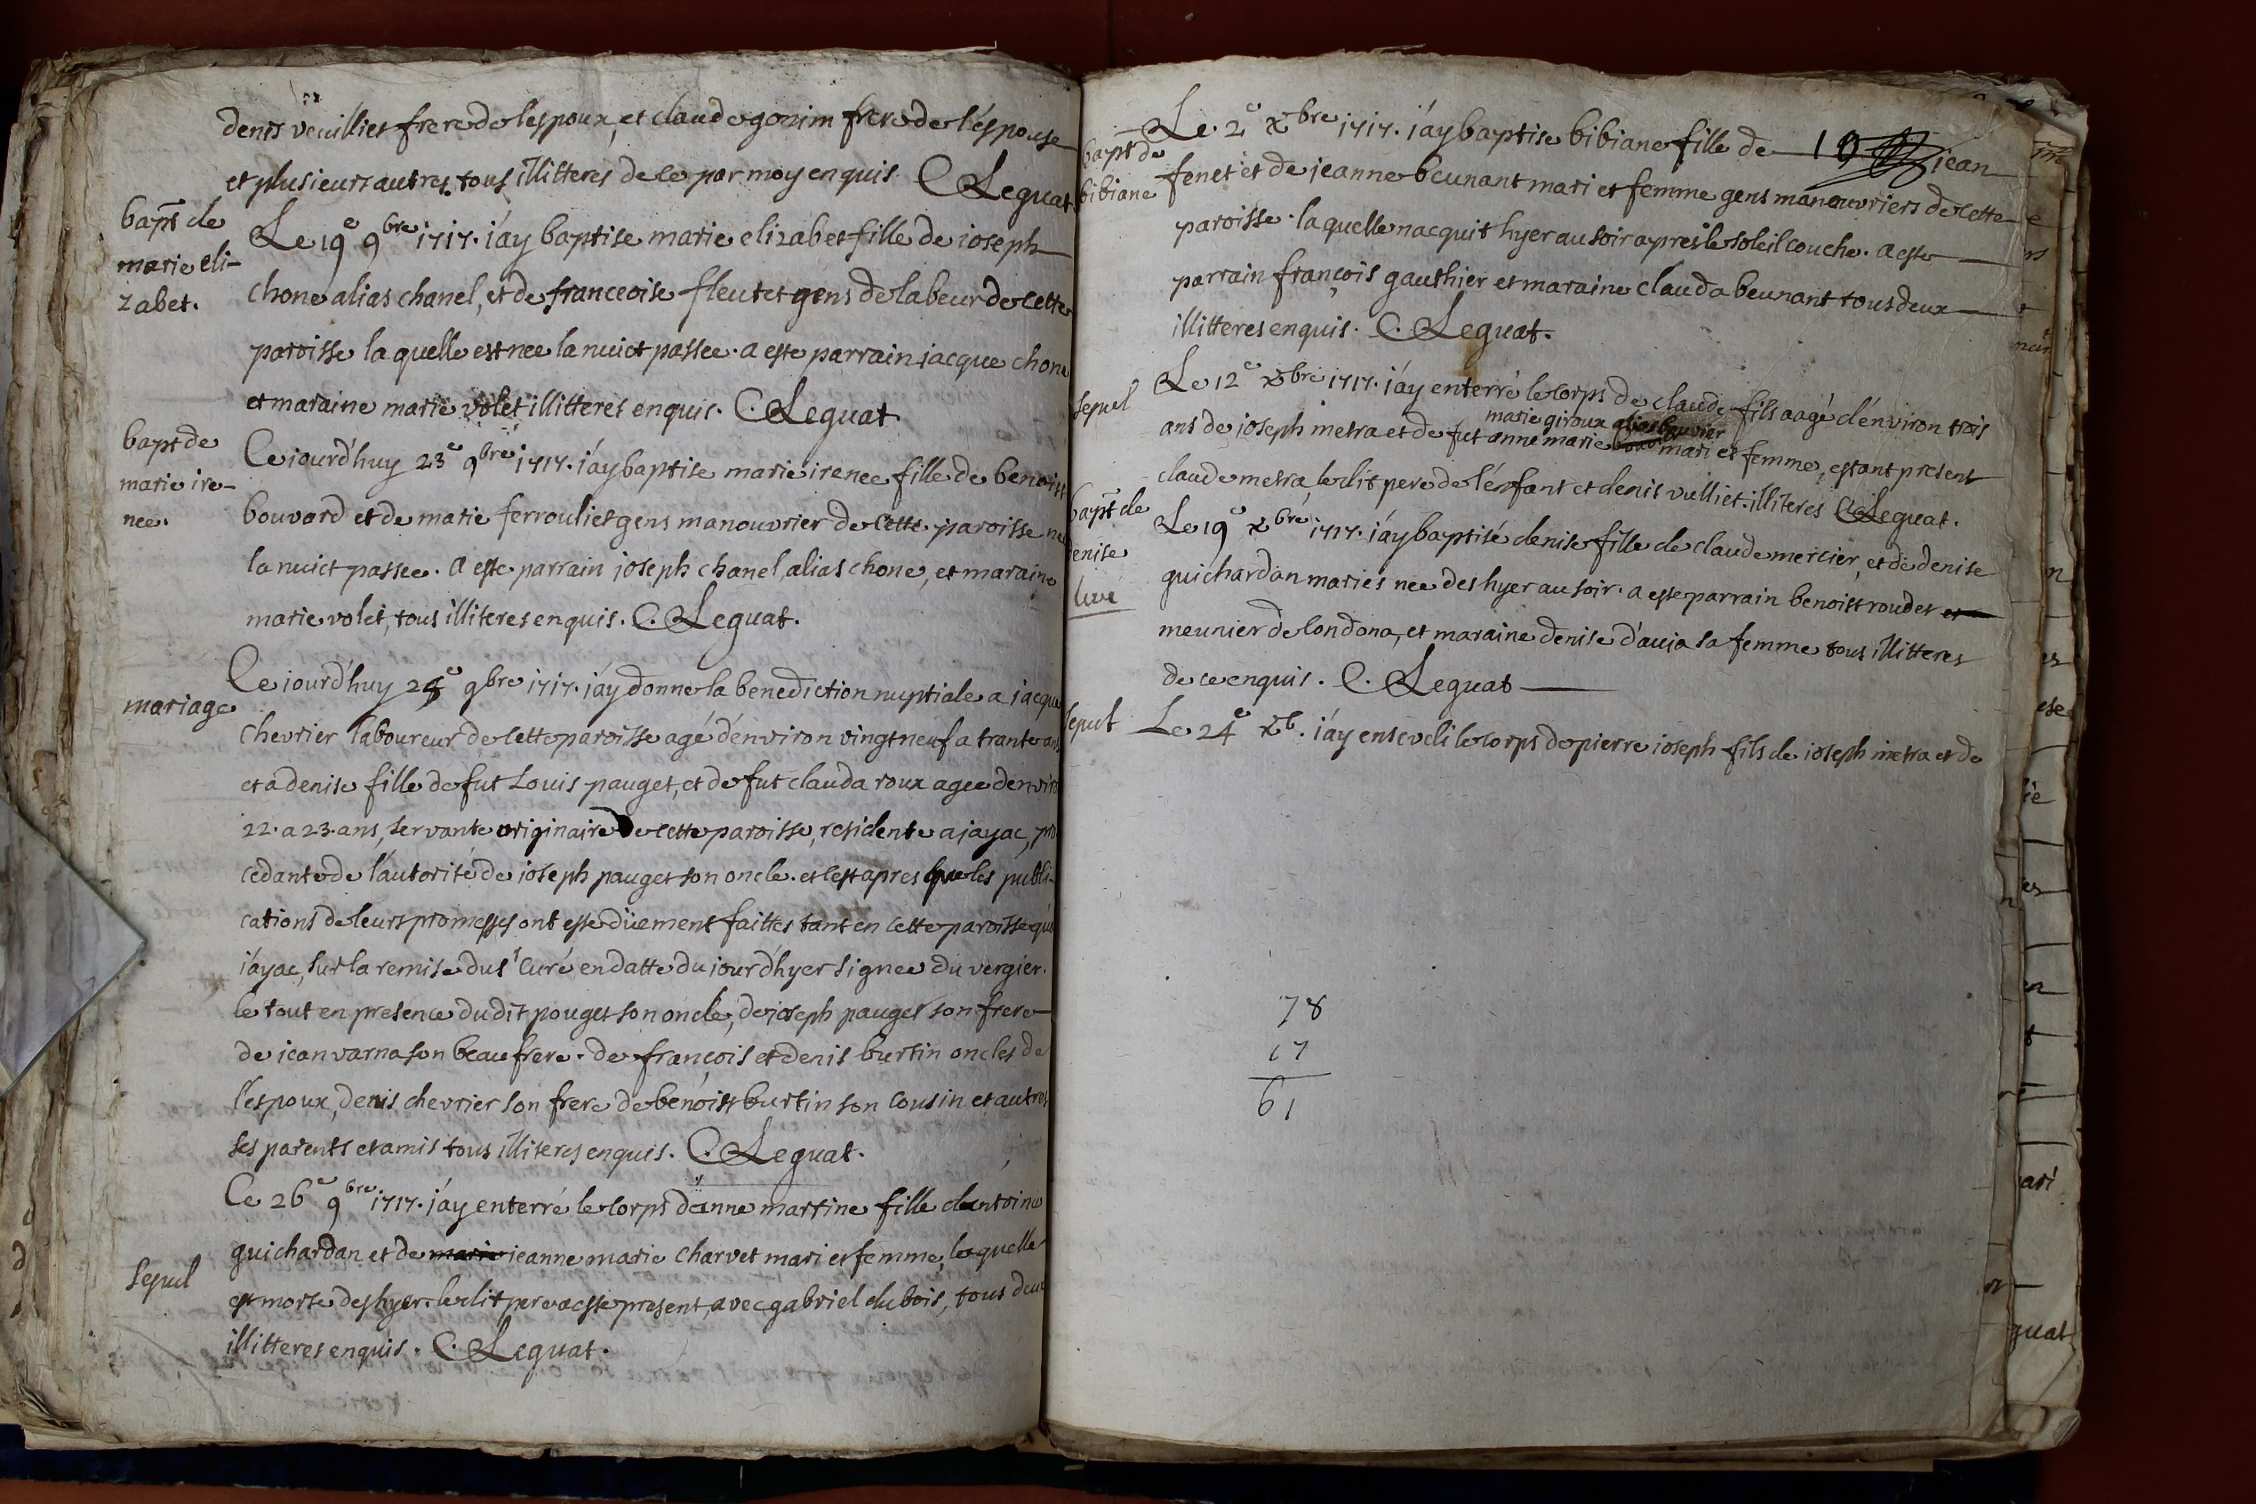 denis veuilliet frere de l'espoux, et claude gonin frere de l'espouse
et plusieurs autres tous illitteres de ce par moy enquis. C Leguat
bapt de
marie eli-
zabet.
Le 19e 9bre 1717. i'ay baptise marie elizabet fille de ioseph
chone alias chanel, et de franceoise fleutet gens de labeur de cette
paroisse laquelle est nee la nuict passee. a este parrain jacque chone
et maraine marie volet illitteres enquis. C. Leguat
bapt de
marie ire-
nee.
Ce iourd'huy 23e 9bre 1717. i'ay baptise marie irenee fille de benoist
bouvard et de marie ferrouliet gens manouvrier de cette paroisse nee
la nuict passee. a este parrain joseph chanel, alias chone, et maraine
marie volet, tous illiteres enquis. C. Leguat.
mariage
Ce iourd'huy 25e 9bre 1717. i'ay donne la benediction nuptiale a jacque
chevrier laboureur de cette paroisse agé d'environ vingt neuf a trante ans
et a denise fille de fut Louis pauget, et de fut clauda roux agee d'environ
22. a 23. ans, servante originaire de cette paroisse, residente a jayac, pro
cedante de l'autorité de ioseph pauget son oncle. et c'est apres que les publi-
cations de leurs promesses ont esté düement faittes tant en cette paroisse qu'a
jayac, sur la remise du sr curé en datte du jour d'hyer signee du vergier.
le tout en presence dudit pouget son oncle, de joseph pauget son frere
de jean varna son beau frere. de françois et denis burtin oncles de
l'espoux, denis chevrier son frere de benoist burtin son cousin et autres
ses parents et amis tous illiteres enquis. C. Leguat.
sepul
Ce 26e 9bre 1717. j'ay enterré le corps d'anne martine fille d'antoine
guichardan et de marie jeanne marie charvet mari et femme, laquelle
est morte des hyer. ledit pere a este present, avec gabriel dubois, tous deux
illitteres enquis. C. Leguat.
bapt de
bibiane
Le 2e xbre 1717. i'ay baptise bibiane fille de 10 jean
fenet et de jeanne beunant mari et femme gens manouvriers de cette
paroisse. laquelle nacquit hyer au soir apres le soleil couche. a este
parrain françois gauthier et maraine clauda beunant tous deux
illitteres enquis. C. Leguat.
sepul
Le 12e xbre 1717. i'ay enterré le corps de claude fils aagé d'environ trois
marie giroux alias bouvier
ans de joseph metra et de fut anne marie mari et femme, estant present
claude metra, ledit pere de l'enfant et denis vulliet. illiteres C Leguat.
bapt de
denise
Le 19e xbre 1717. i'ay baptisé denise fille de claude mercier, et de denise
guichardan mariés nee des hyer au soir. a este parrain benoist roudet et
meunier de londona, et maraine denise d'auja sa femme tous illitteres
de ce enquis. C. Leguat
sepul
Le 24e xb. i'ay enseveli le corps de pierre ioseph fils de ioseph metra et de
78
17
61